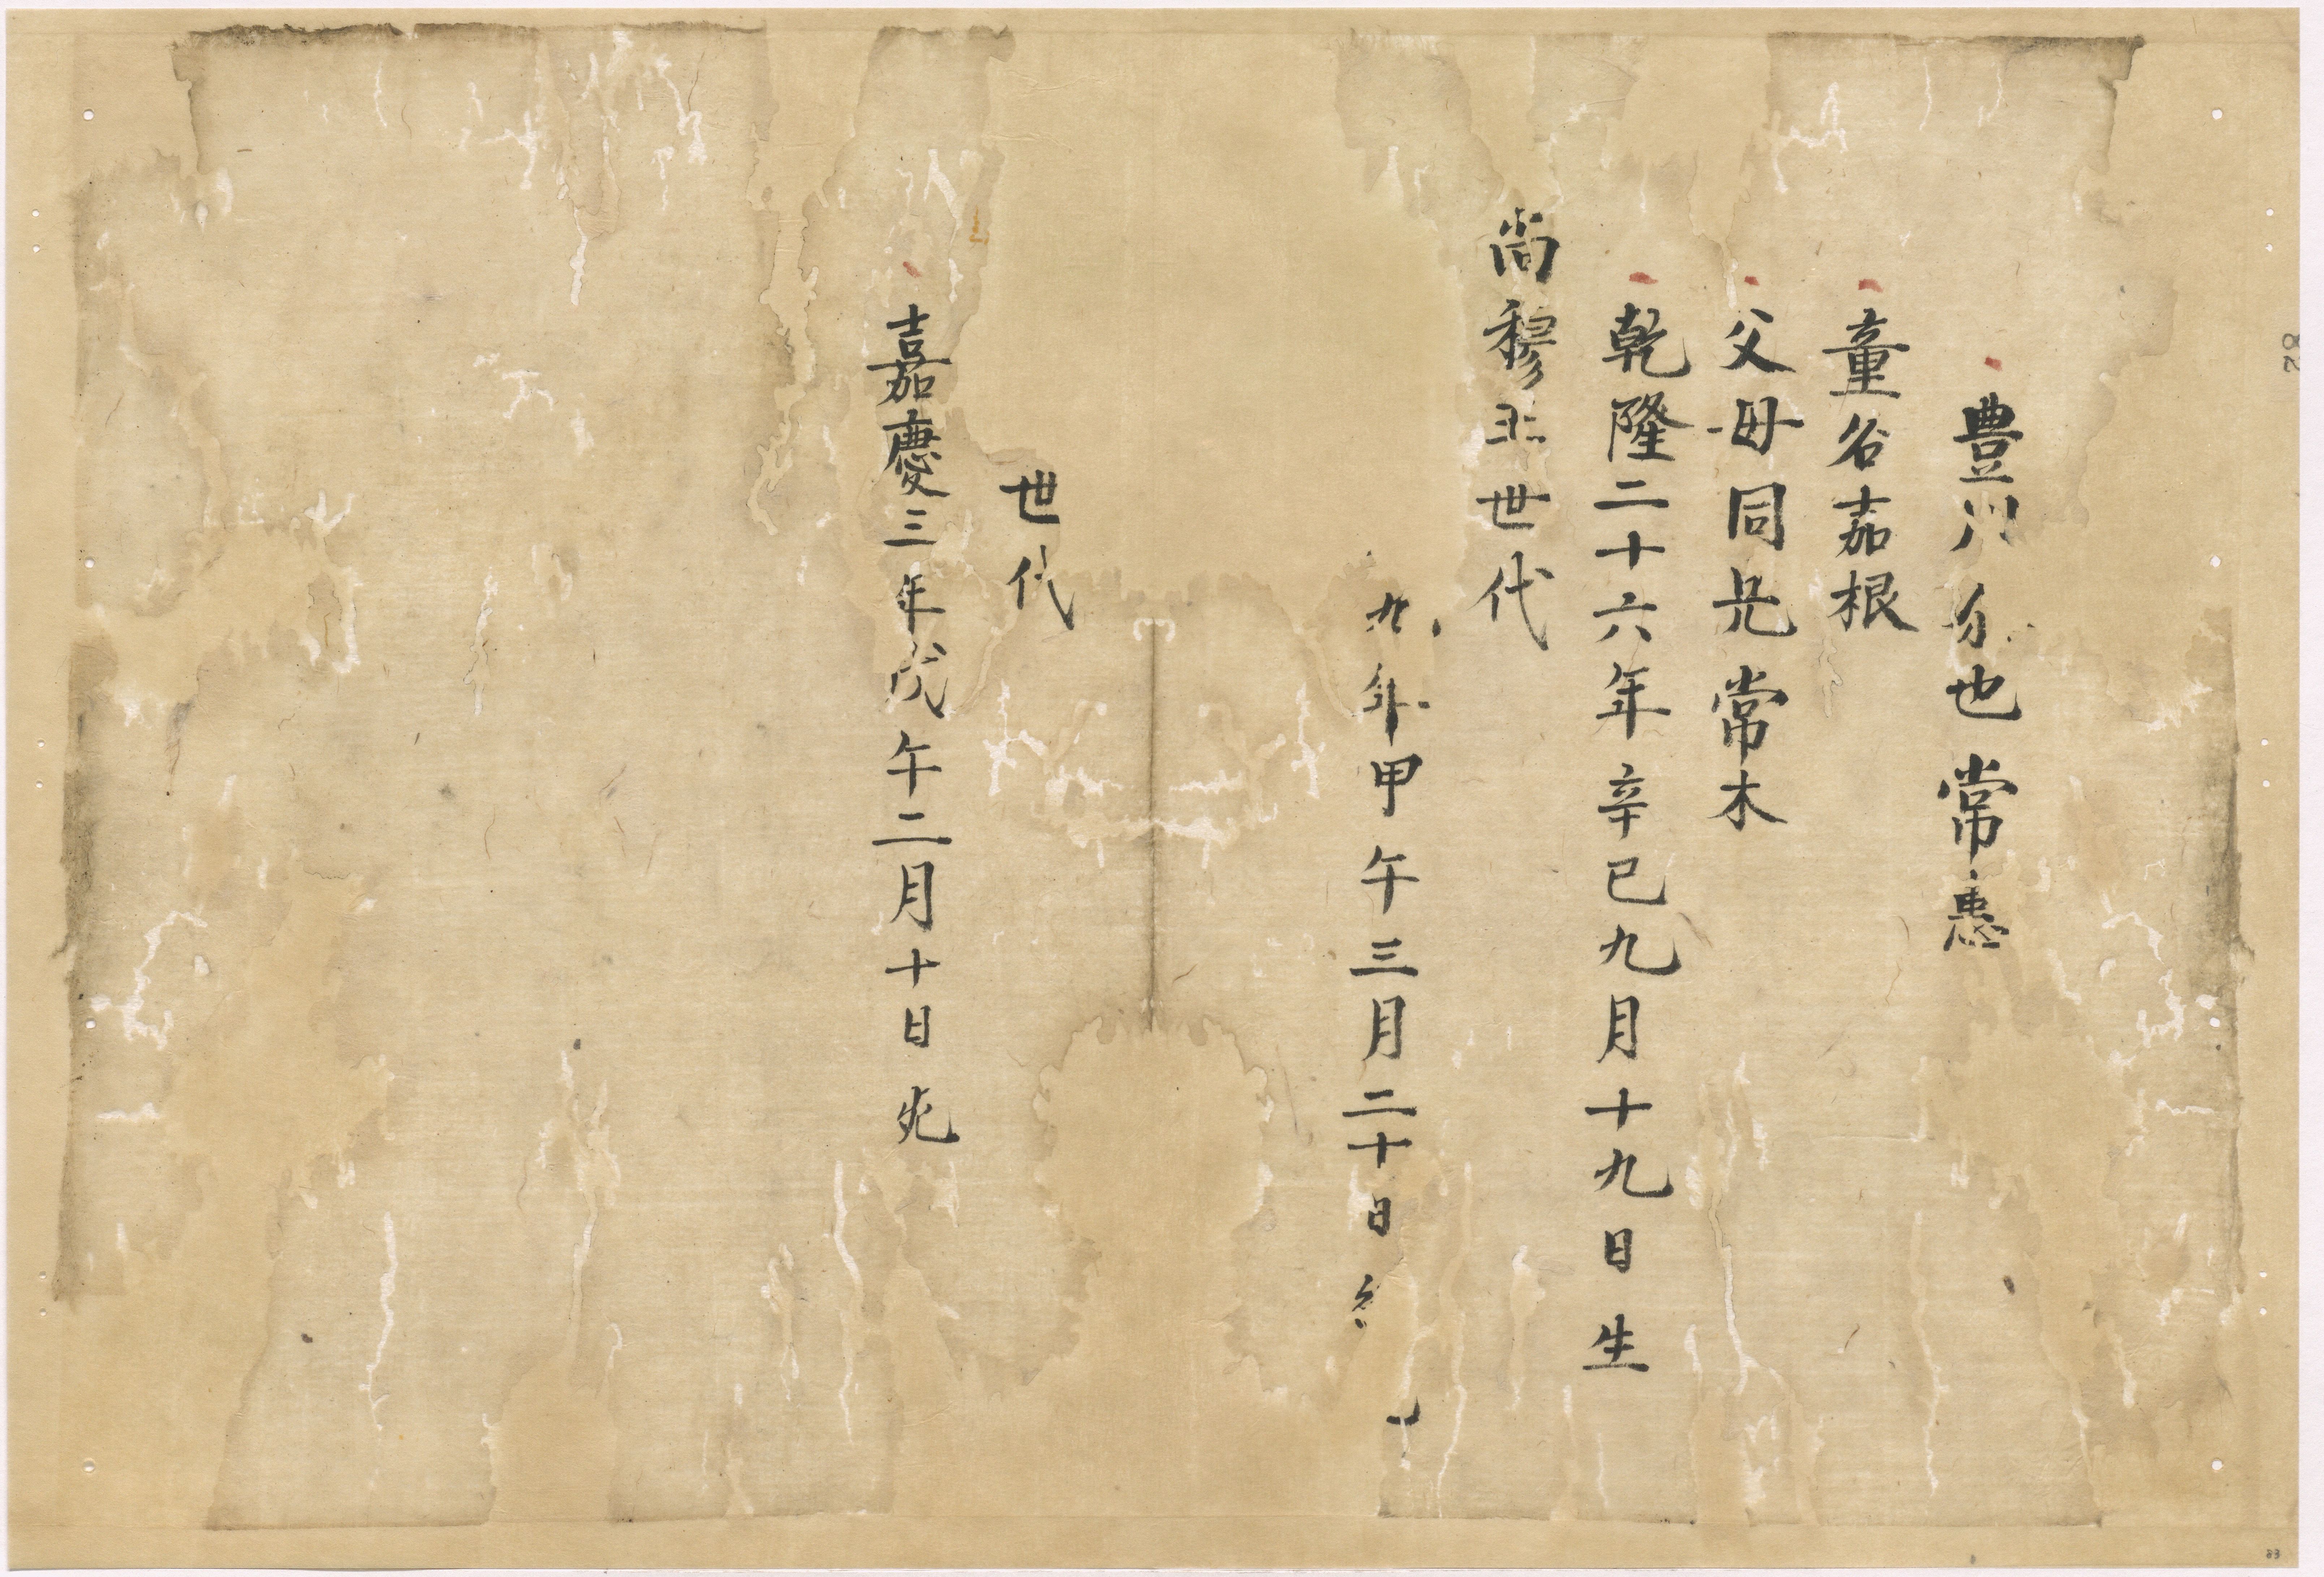 豊川 也常惠
童名嘉根
父母同兄常木
乾隆二十六年辛巳九月十九日生
尚穆王世代
九年甲午三月二十日
世代
嘉慶三年戊午二月十日死